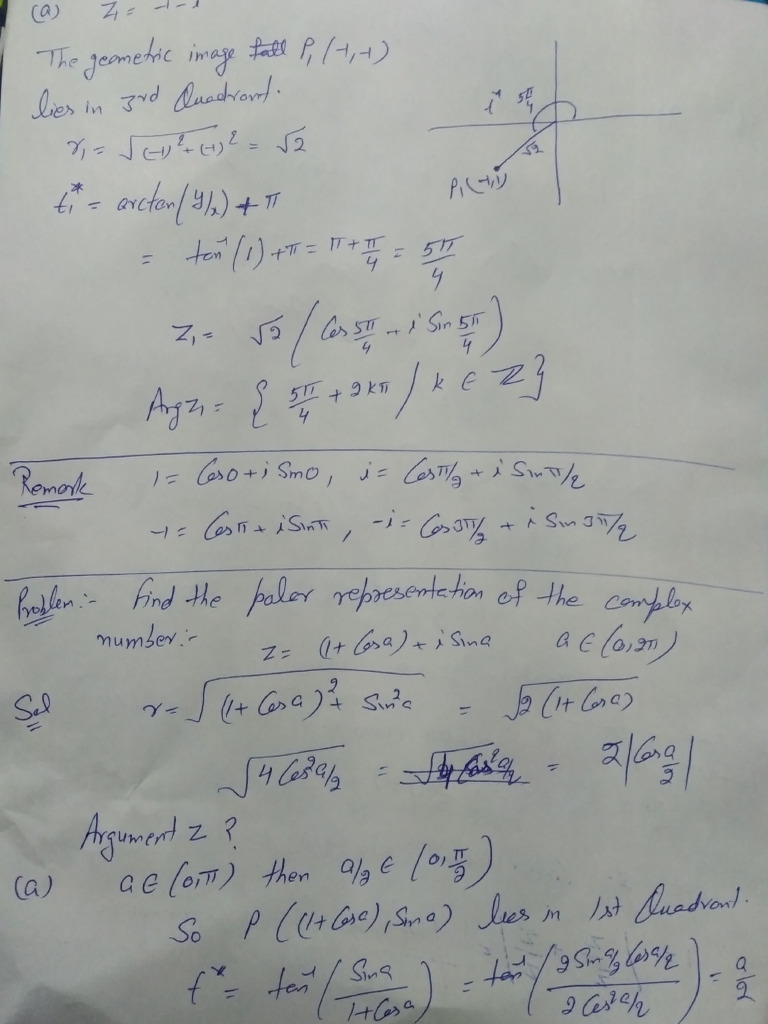 (a) Z₁ = -1-i
The geometric image P₁(-1,-1)
lies in 3rd Quadrant.
r₁ = √((-1)²+(-1)²) = √2
t₁* = arctan(y/x) + π
= tan⁻¹(1) + π = π + π/4 = 5π/4
5π/4
√2
P₁(-1,1)
Z₁ = √2 (Cos 5π/4 + i Sin 5π/4)
Arg z₁ = { 5π/4 + 2kπ / k ∈ ℤ }
Remark 1 = Cos0 + i Sin0, i = Cosπ/2 + i Sinπ/2
-1 = Cosπ + i Sinπ, -i = Cos3π/2 + i Sin 3π/2
Problem:- find the polar representation of the complex
number:- z = (1+Cosa) + i Sina a ∈ (0,2π)
Sol r = √((1+Cosa)² + Sin²a) = √2(1+Cosa)
√4Cos²a/2 = = 2|Cos a/2|
Argument z ?
(a) a ∈ (0,π) then a/2 ∈ (0, π/2)
So P((1+Cosa), Sina) lies in 1st Quadrant.
t* = tan⁻¹(Sina/1+Cosa) = tan⁻¹(2Sina/2 Cosa/2 / 2Cos²a/2) = a/2